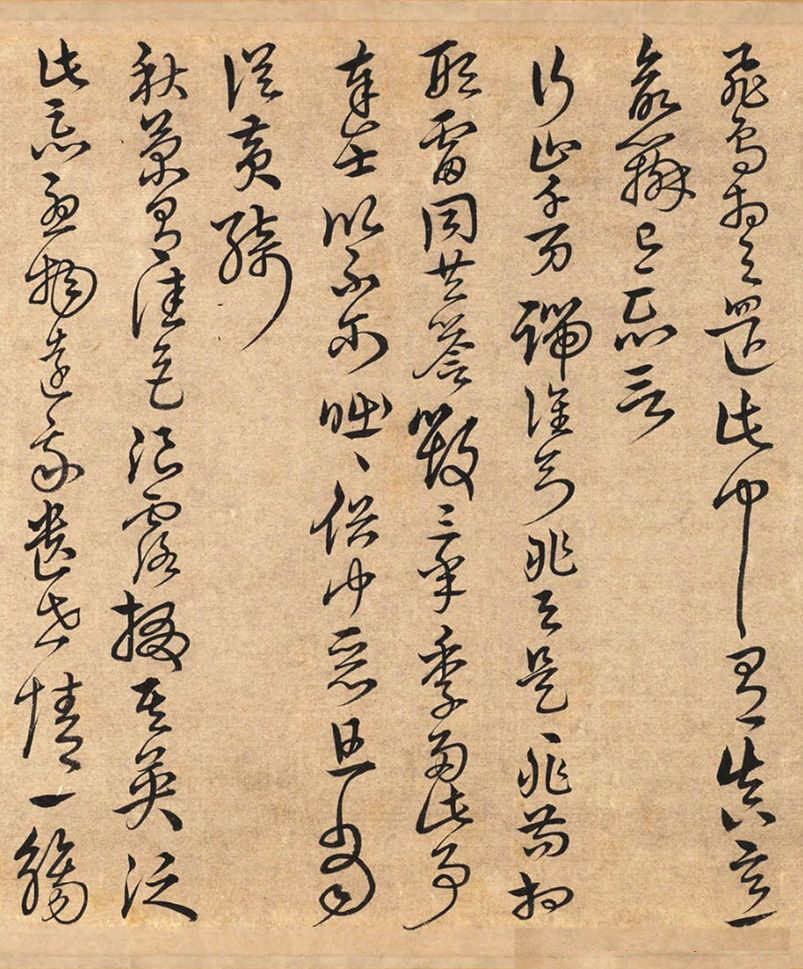 飛鳥相与還此中有真意
欲辯已忘言
行止千万端誰知非与是々非苟相
形雷同共譽毀三年季多此事
達士似不尔咄々俗中惡且當
從黃綺
秋菊有佳色浥露掇其英泛
此忘憂物遠我遺世情一觴